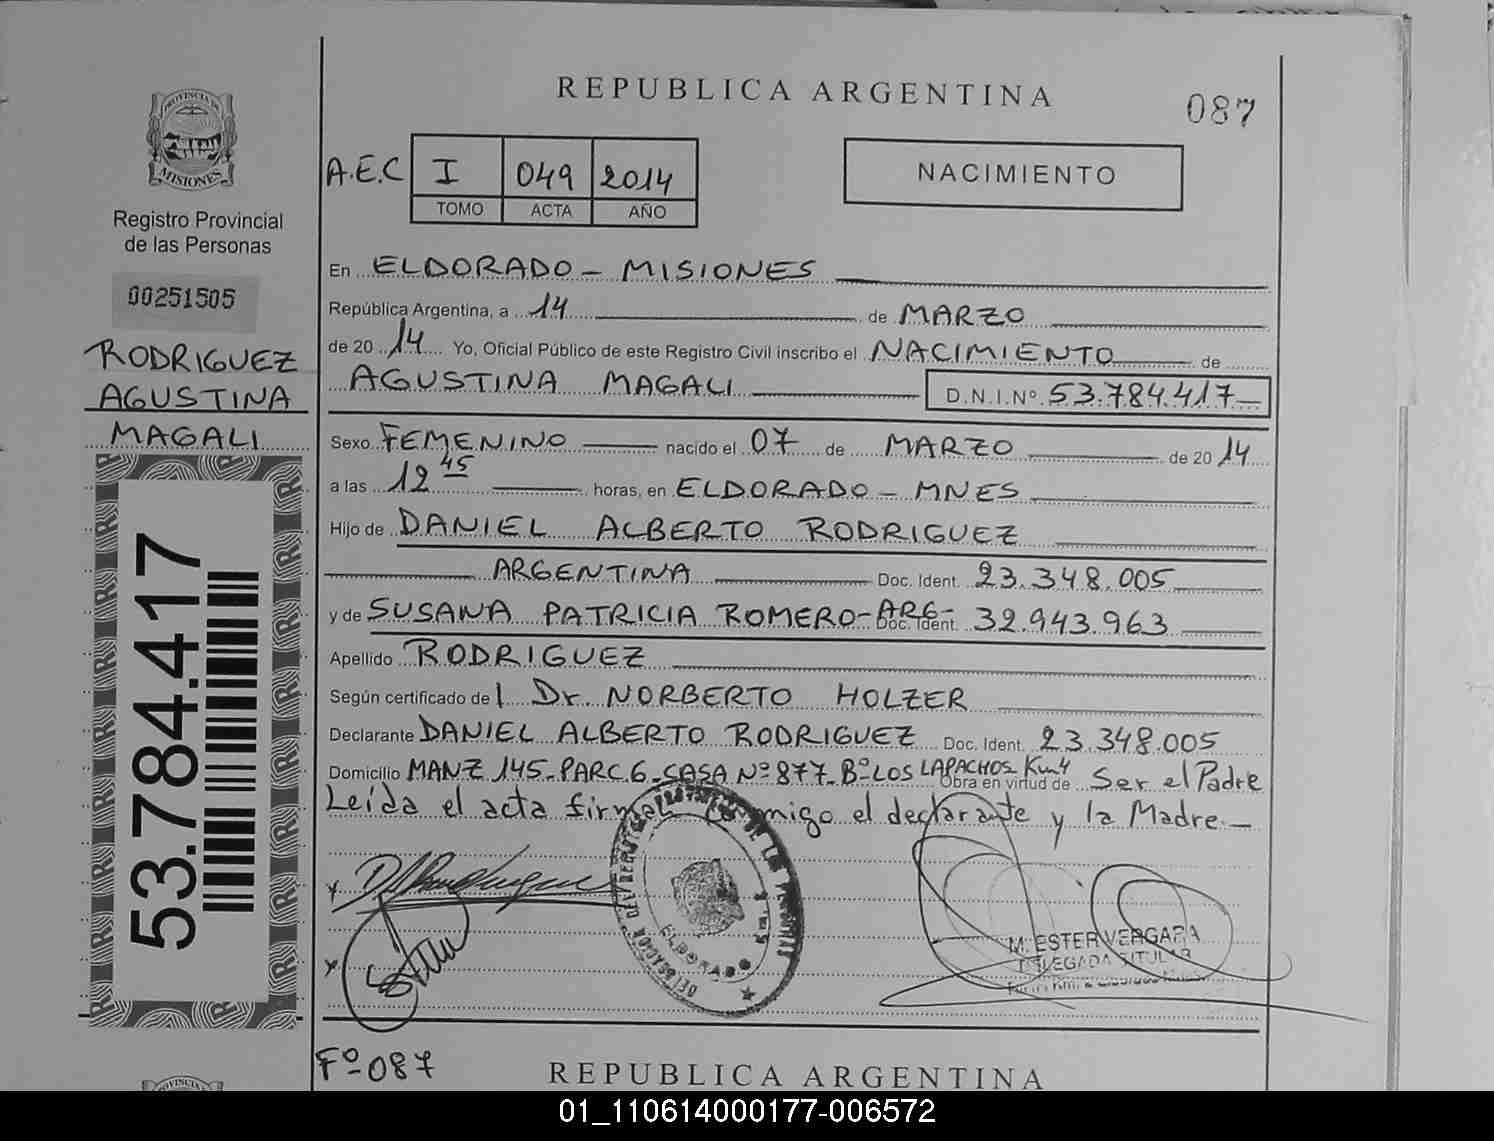 REPUBLICA ARGENTINA
087
PROVINCIA DE
MISIONES
Registro Provincial
de las Personas
00251505
RODRIGUEZ
AGUSTINA
MAGALI
53.784.417
A.E.C I 049 2014
TOMO ACTA AÑO
NACIMIENTO
En ELDORADO - MISIONES
República Argentina, a 14 de MARZO
de 20 14 Yo, Oficial Público de este Registro Civil inscribo el NACIMIENTO de
AGUSTINA MAGALI D.N.I.Nº 53.784.417
Sexo FEMENINO nacido el 07 de MARZO de 20 14
a las 12 45 horas, en ELDORADO - MNES
Hijo de DANIEL ALBERTO RODRIGUEZ
ARGENTINA Doc. Ident. 23.348.005
y de SUSANA PATRICIA ROMERO-ARG- Doc. Ident. 32.943.963
Apellido RODRIGUEZ
Según certificado de l Dr. NORBERTO HOLZER
Declarante DANIEL ALBERTO RODRIGUEZ Doc. Ident. 23.348.005
Domicilio MANZ 145-PARC.6-CASA Nº 877-Bº LOS LAPACHOS Km 4 Obra en virtud de Ser el Padre
Leída el acta firman conmigo el declarante y la Madre.
ELDORADO
M. ESTER VERGARA
DELEGADA TITULAR
Fº 087
REPUBLICA ARGENTINA
01_110614000177-006572